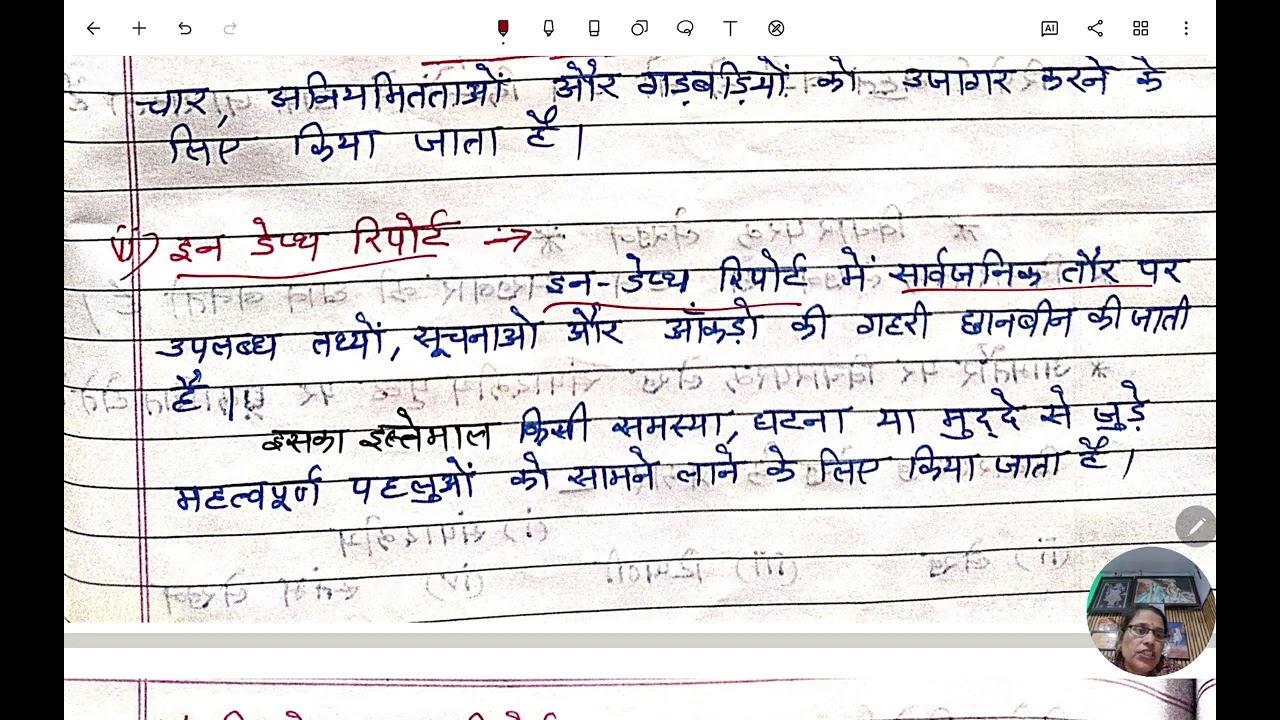 चार, अनियमितंताओं और गड़बड़ियों को उजागर करने के
लिए किया जाता है।
ii) इन डेप्थ रिपोर्ट →
इन-डेप्थ रिपोर्ट में सार्वजनिक तौर पर
उपलब्ध तथ्यों, सूचनाओ और आँकड़ो की गहरी छानबीन की जाती
है।
इसका इस्तेमाल किसी समस्या, घटना या मुद्दे से जुड़े
महत्वपूर्ण पहलुओं को सामने लाने के लिए किया जाता है।